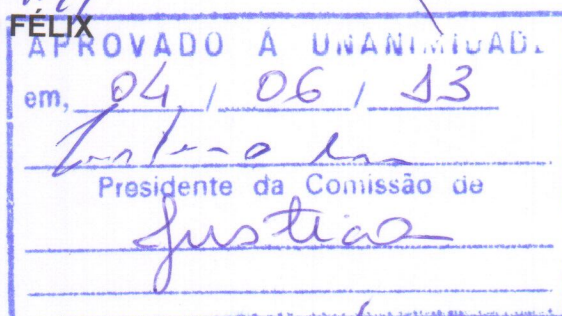 FÉLIX
APROVADO À UNANIMIDAD.
em, 04 / 06 / 13
Presidente da Comissão de
Justiça